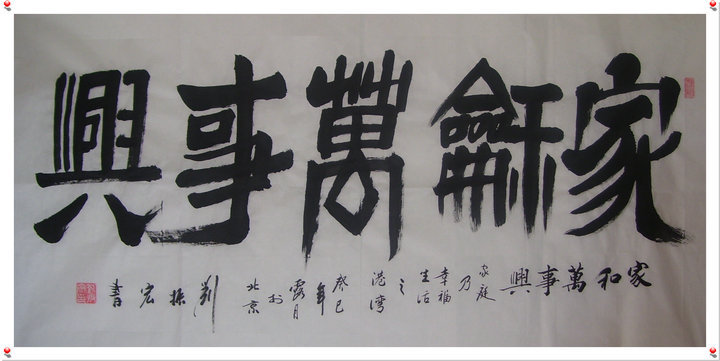 家龢萬事興
家和萬事興 家庭乃幸福生活之港灣 癸巳年露月於北京 劉振宏書